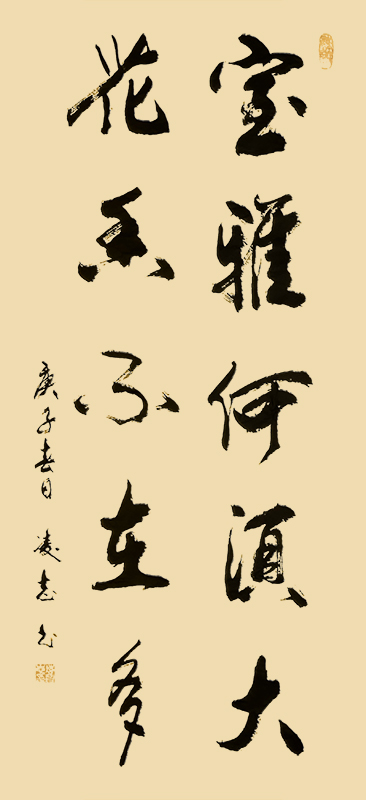 室雅何須大
花香不在多
庚子春日 凌志书